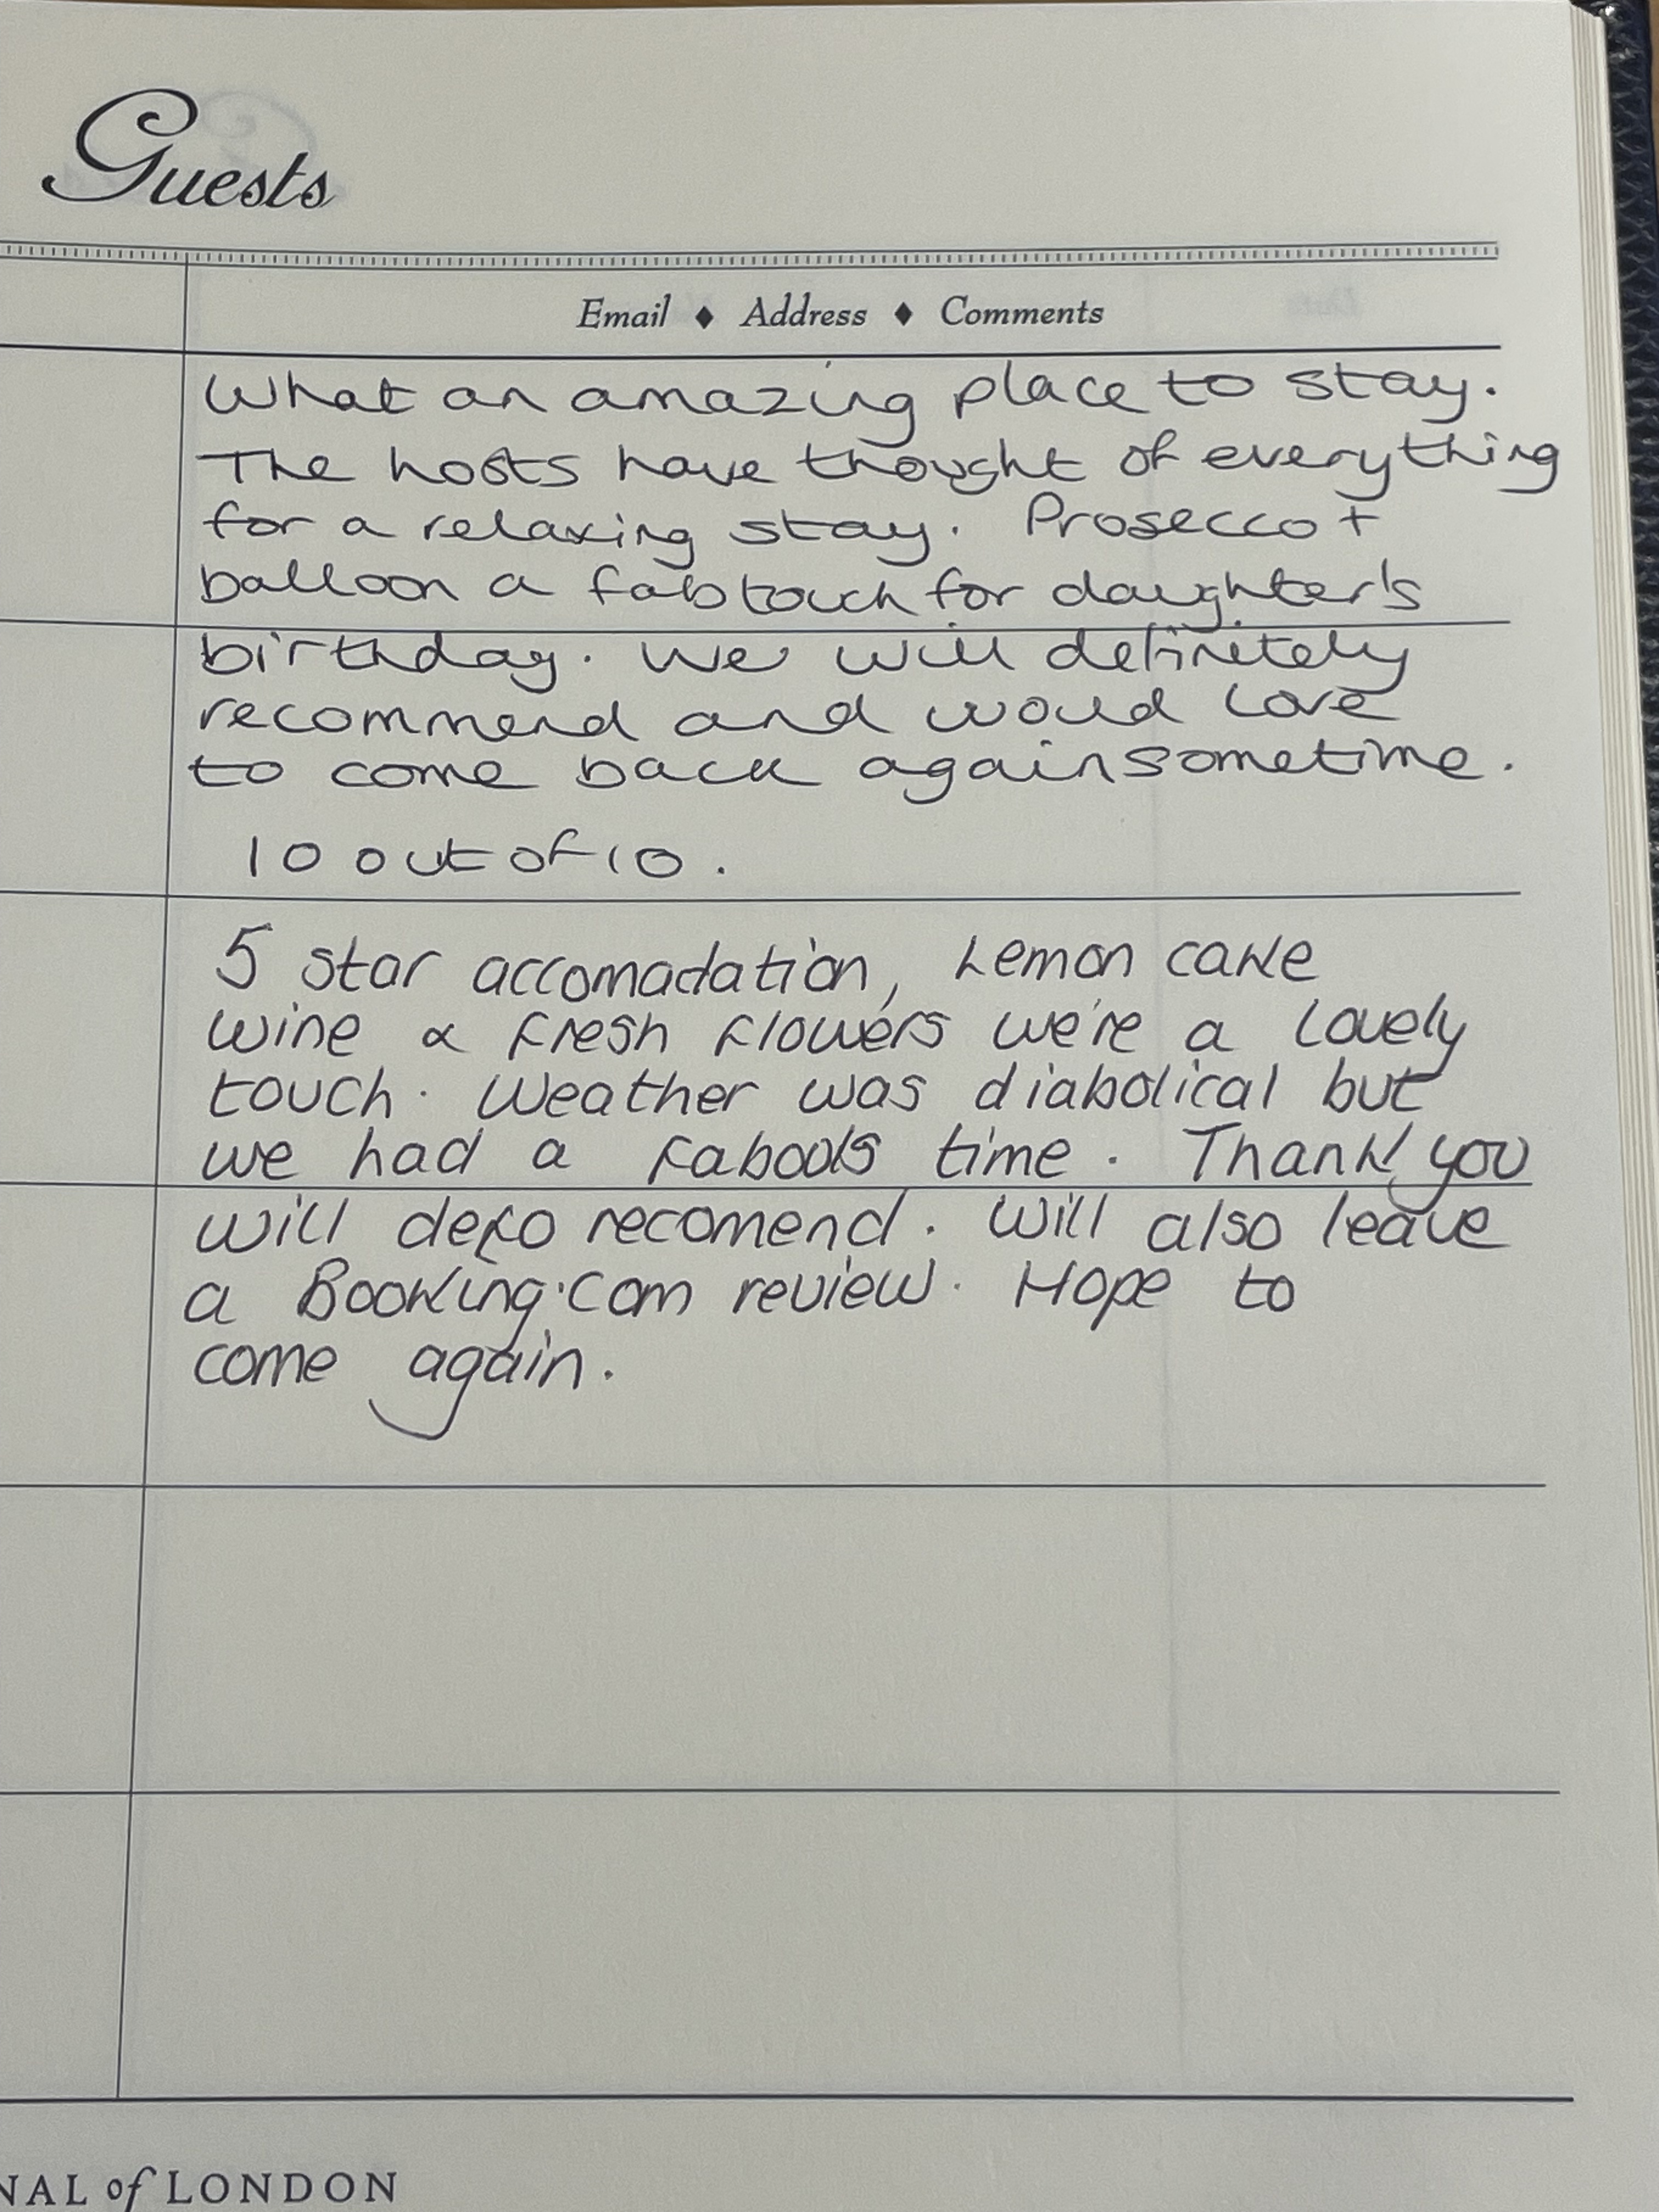 Guests
Email ♦ Address ♦ Comments
What an amazing place to stay.
The hosts have thought of everything
for a relaxing stay. Prosecco +
balloon a fab touch for daughter's
birthday. We will definitely
recommend and would love
to come back again sometime.
10 out of 10.
5 star accomadation, Lemon cake
wine & fresh flowers we're a lovely
touch. Weather was diabolical but
we had a time. Thank you
will defo recomend. Will also leave
a Booking.com review. Hope to
come again.
NAL of LONDON